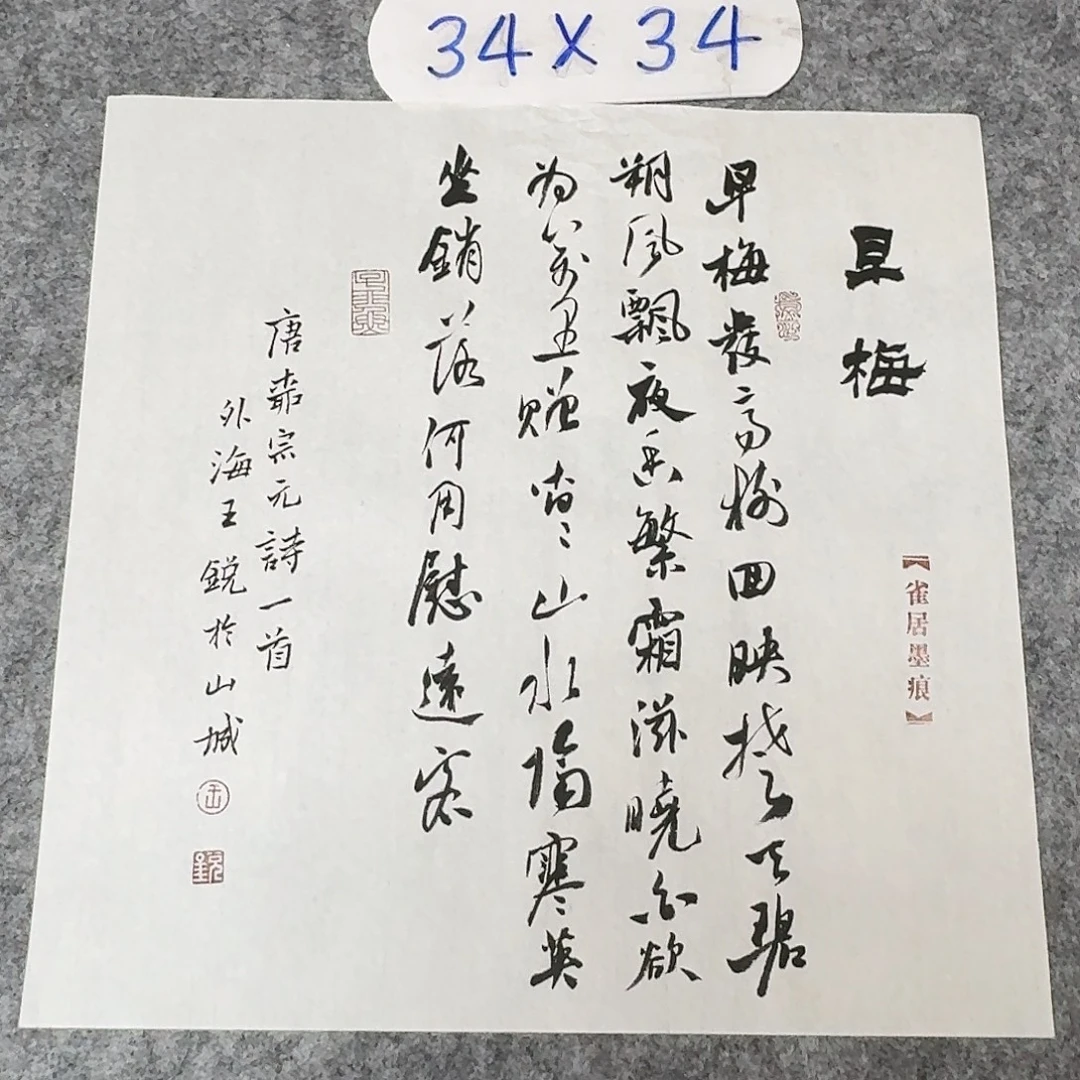 34×34
早梅
【雀居墨痕】
早梅發高樹回映楚天碧
朔風飄夜香繁霜滋曉白欲
為萬里贈杳〻山水隔寒英
坐銷落何用慰遠客
唐柳宗元詩一首
外海王銳於山城
王
銳